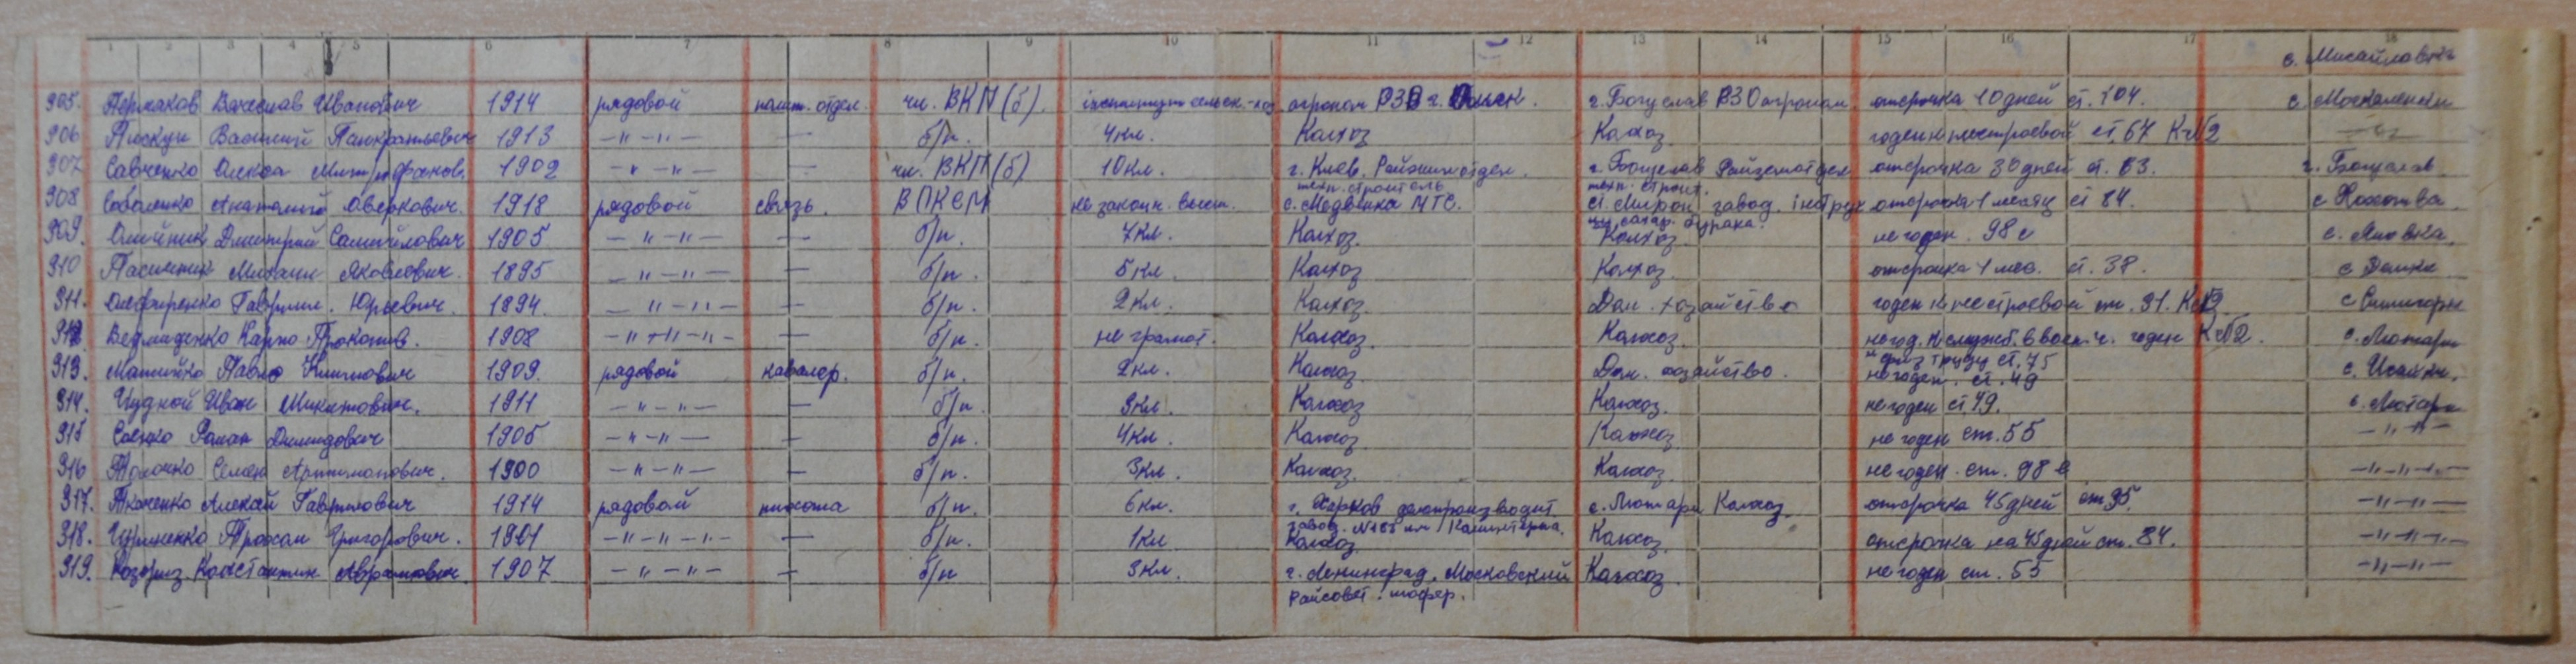 1 2 3 4 5 6 7 8 9 10 11 12 13 14 15 16 17 18
с. Мисайловка
905. Пермаков Вячеслав Иванович 1914 рядовой полит. отдел. чл. ВКП(б). институт сельск.-хоз агроном РЗВ г. г. Богуслав РЗО агроном отсрочка 10 дней ст. 104. с. Москаленки
906 Пискун Василий Панкратьевич 1913 -"-"- — б/п. 4 кл. Колхоз Колхоз годен к нестроевой ст. 67 К №2
907 Савченко Олекса Митрофанов. 1902 -"-"- — чл. ВКП(б) 10 кл. г. Киев. г. Богуслав Райземотдел отсрочка 30 дней ст. 63. г. Богуслав
техн. строитель техн. строит.
908 Соболенко Анатолий Оверкович. 1918 рядовой связь. ВЛКСМ не законч. высш. с. Медвинка МТС. ст. Мирон. завод. інструк отсрочка 1 месяц ст 84. с
по сахар. бурака.
909. Олийник Дмитрий Самийлович 1905 -"-"- — б/п. 7 кл. Колхоз. Колхоз. не годен. 98 с
910 Пасичник Михаил Яковлевич. 1895 -"-"- — б/п. 5 кл. Колхоз Колхоз отсрочка 1 мес. ст. 38. с Дешки
911. Олефиренко Гаврил. Юрьевич. 1894. -"-"- — б/п. 2 кл. Колхоз Дом. хозяйство годен к нестроевой ст. 31. К №2. с Синицы
912. Ведмиденко Карпо Прокопов. 1908 -"-"-"- — б/п. не грамот. Колхоз. Колхоз. негод. к служб. в воен. ч. годен К №2. с. Лютари
к физ труду ст. 75
913. Павло Климович 1909. рядовой кавалер. б/п. 2 кл. Колхоз Дом. хозяйство. не годен. ст. 49 с. Исайки.
914. Чудной Иван Микитович. 1911 -"-"- — б/п. 3 кл. Колхоз Колхоз. не годен ст 49. с. Лютари
915 Роман Демидович 1905 -"-"- — б/п. 4 кл. Колхоз Колхоз не годен ст. 55 -"-"-
916 Семен Артимонович. 1900 -"-"- — б/п. 3 кл. Колхоз. Колхоз. не годен. ст. 98 в -"-"-"-
917. Ткаченко Алексей Гаврилович 1914 рядовой пихота б/п. 6 кл. г. Харков делопроизводит. с. Лютари Колхоз отсрочка 45 дней ст 95. -"-"-
завод. №183 им Каминтерна.
918. Трохим Григорович. 1901 -"-"-"- — б/п. 1 кл Колхоз. Колхоз. отсрочка на 45 дней ст. 84. -"-"-"-
919. Козориз Константин Аврамович. 1907 -"-"- — б/п 3 кл. г. Ленинград. Московский Колхоз. не годен ст. 55 -"-"-
Райсовет. шофер.